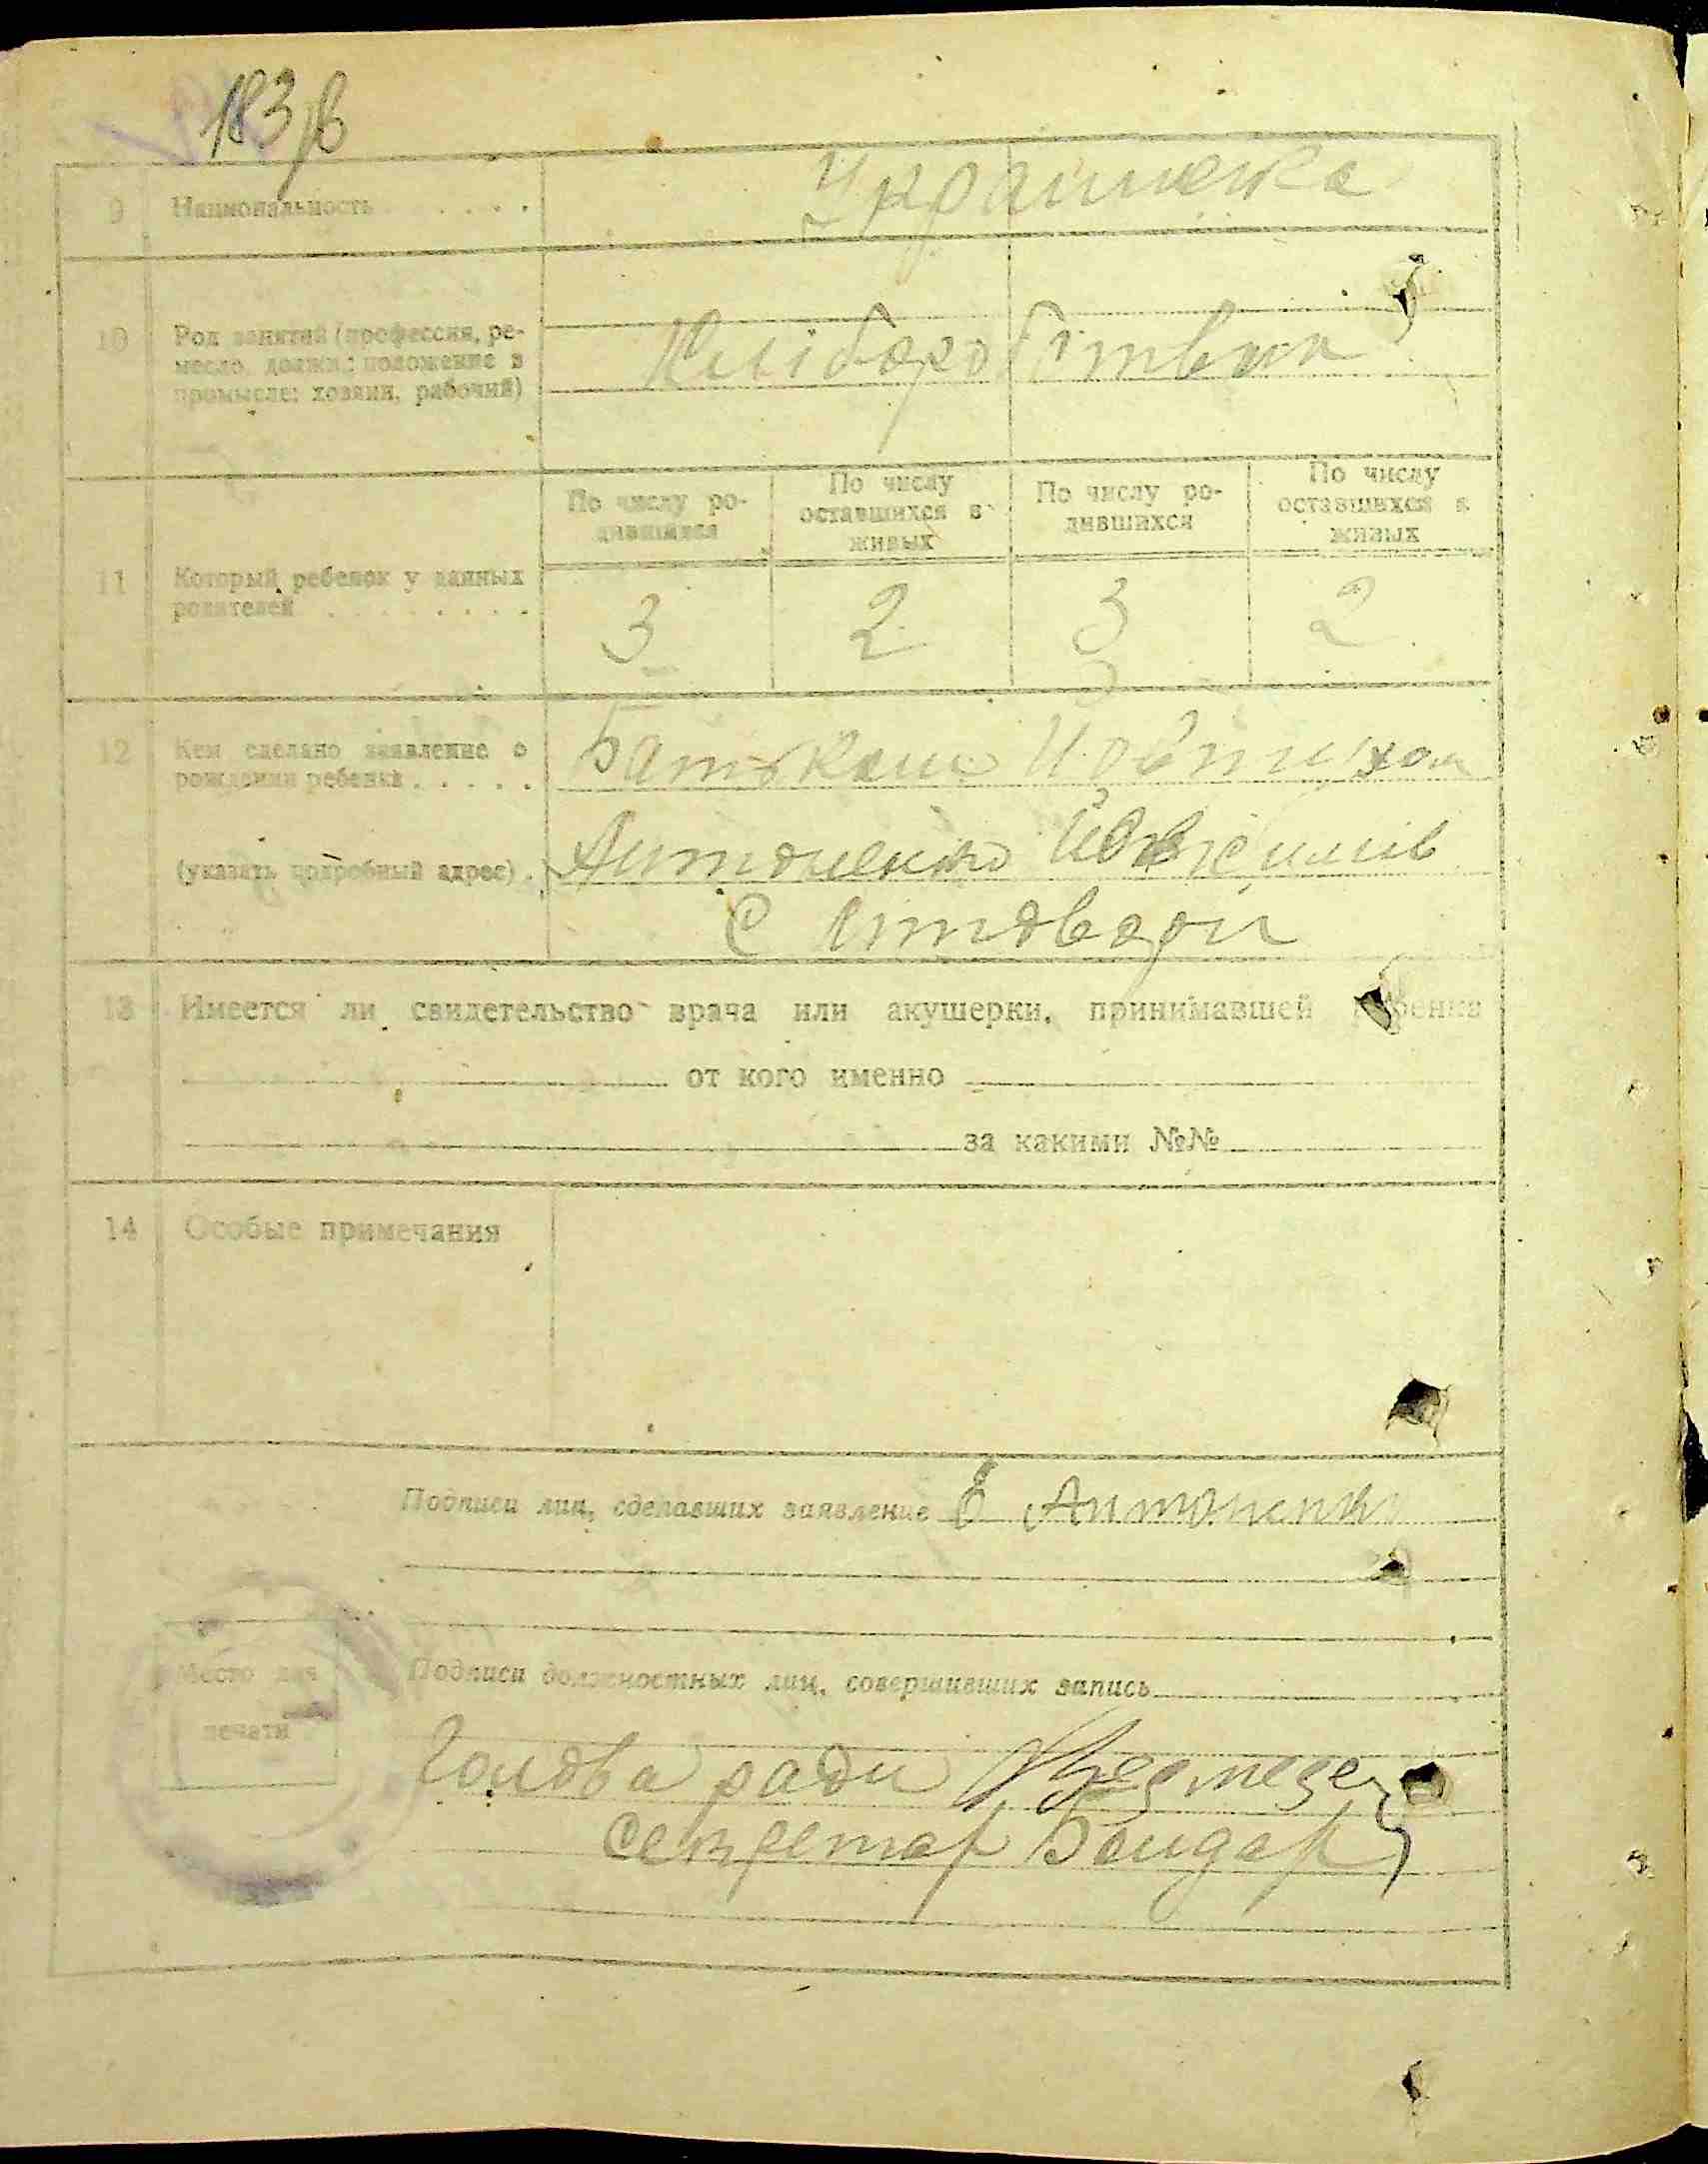 183/в
9 Национальность
Українска
10 Род занятий (профессия, ре-
месло, должн.: положение в
промысле: хозяин, рабочий)
Хлібаробітвом
По числу ро-
дившихся
По числу
оставшихся в
живых
По числу ро-
дившихся
По числу
оставшихся в
живых
11 Который ребенок у данных
родителей
3 2 3 2
12 Кем сделано заявление о
рождении ребенка
Батьком
(указать подробный адрес)
Антоненко
С
13 Имеется ли свидетельство врача или акушерки, принимавшей ребенка
от кого именно
за какими №№
14 Особые примечания
Подписи лиц, сделавших заявление Є Антоненко
Место для
печати
Подписи должностных лиц, совершивших запись
Голова ради
Секретар Бондар